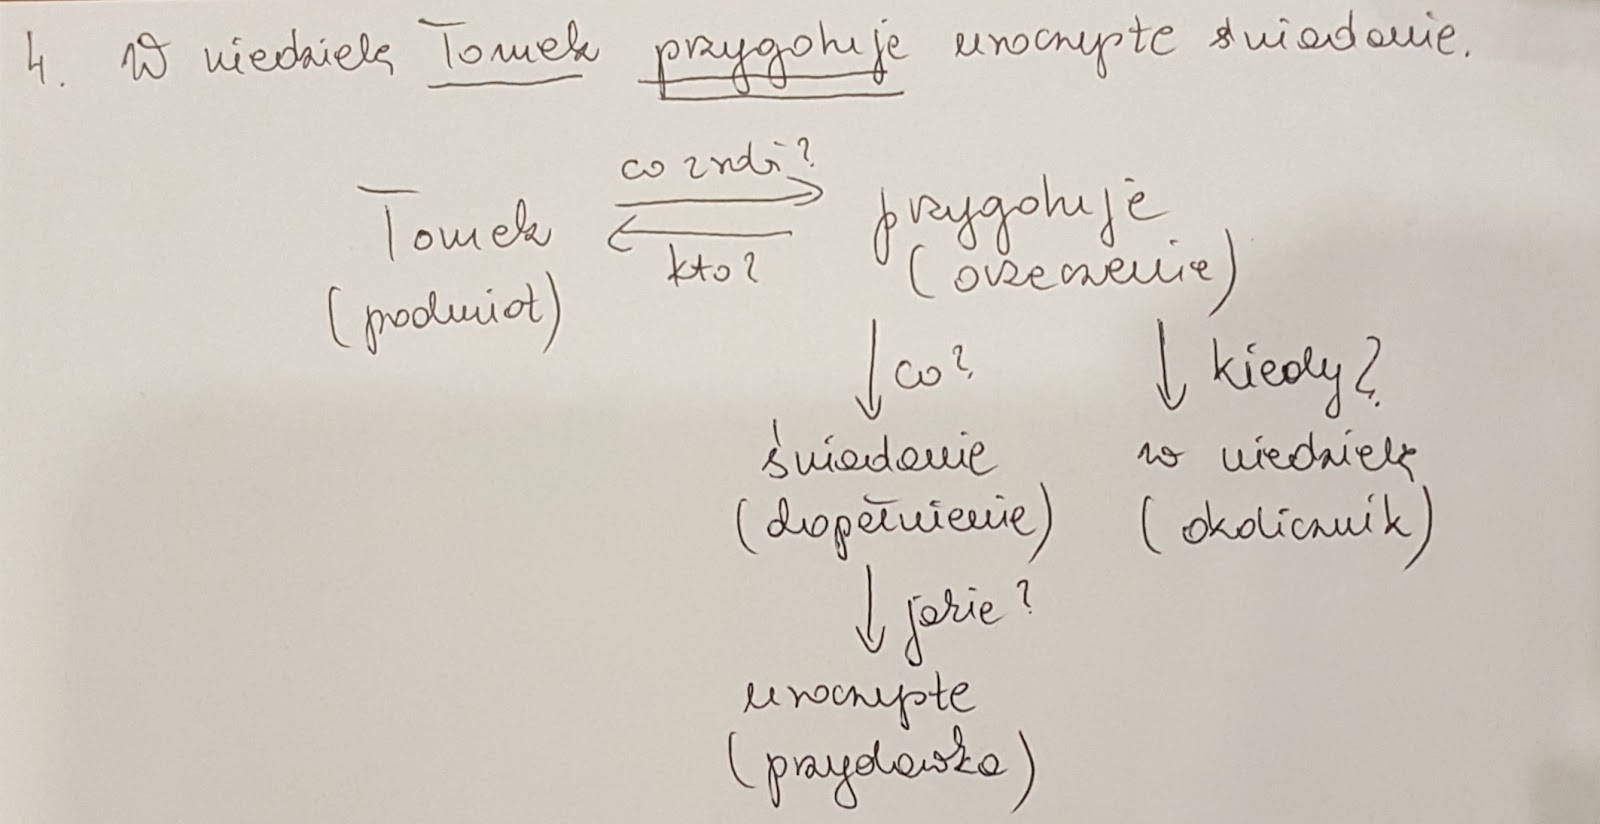 4. W niedzielę Tomek przygotuje uroczyste śniadanie.
co zrobi?
Tomek przygotuje
kto?
(podmiot) (orzeczenie)
co? kiedy?
śniadanie w niedzielę
(dopełnienie) (okolicznik)
jakie?
uroczyste
(przydawka)